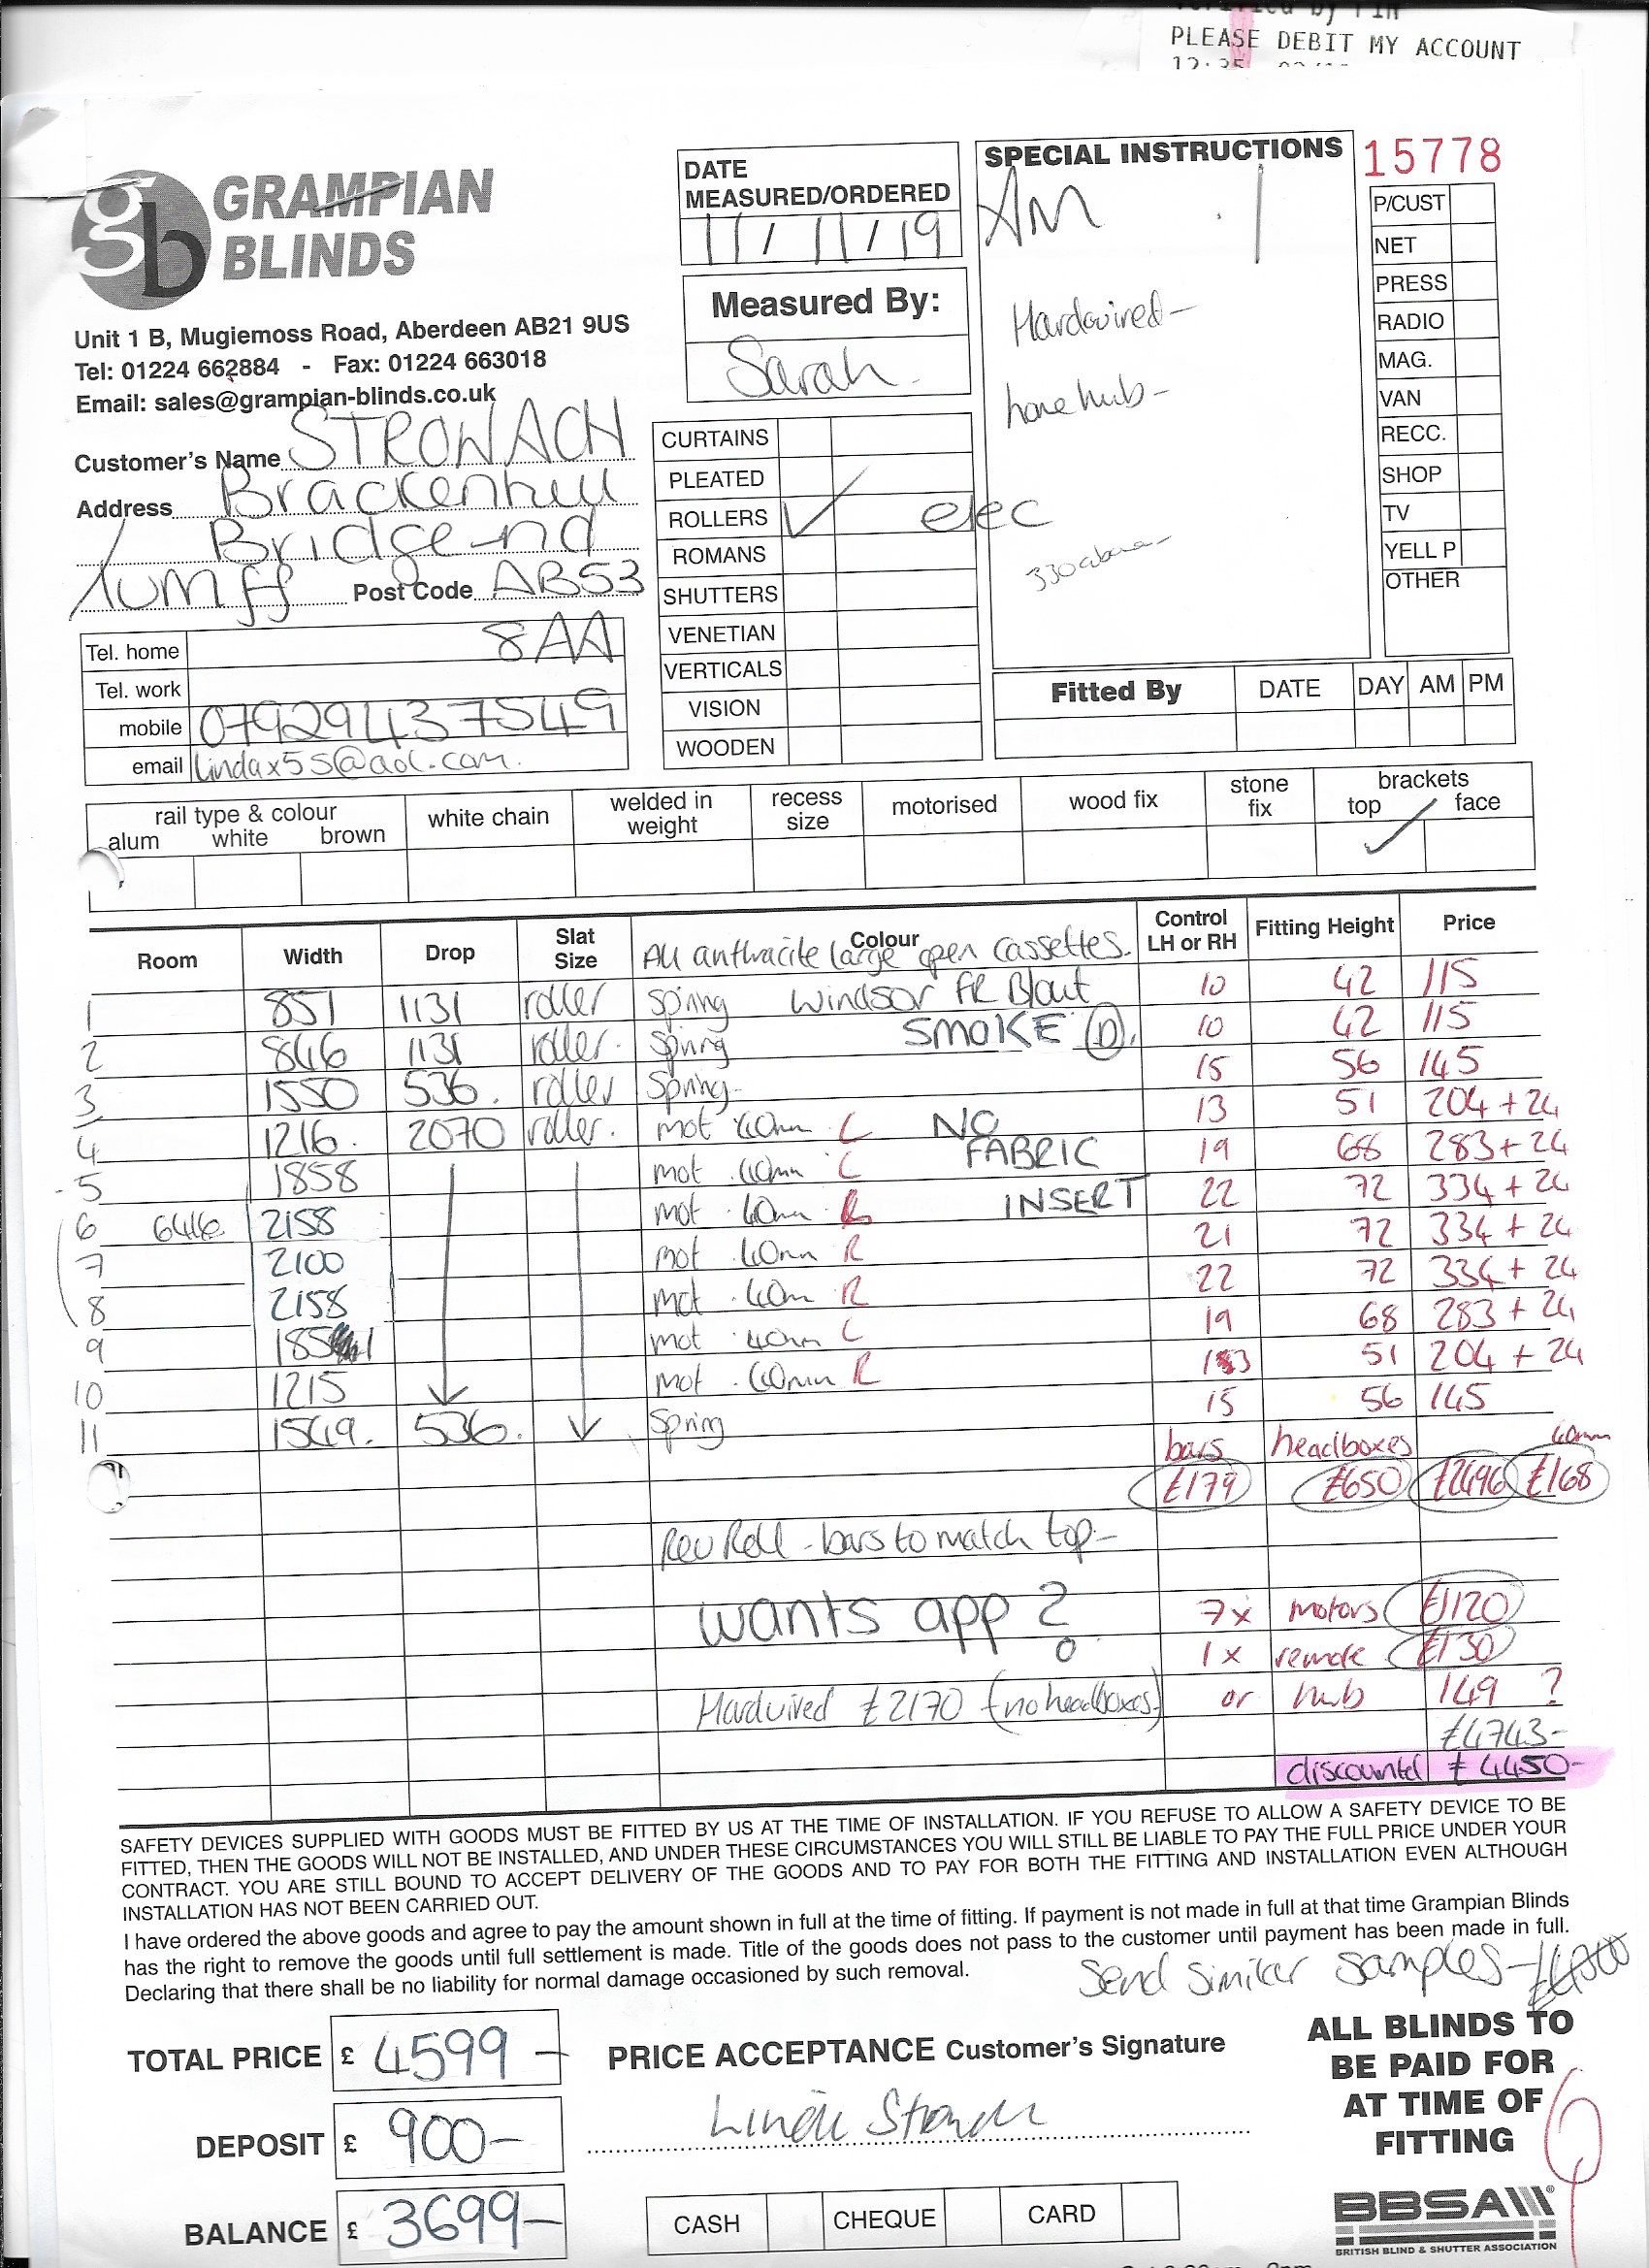 PLEASE DEBIT MY ACCOUNT
GRAMPIAN
BLINDS
gb
Unit 1 B, Mugiemoss Road, Aberdeen AB21 9US
Tel: 01224 662884 - Fax: 01224 663018
Email: sales@grampian-blinds.co.uk
Customer's Name STRONACH
Address Brackenhill
Bridgend
Turriff Post Code AB53
8AA
Tel. home
Tel. work
mobile 07929437549
email lindax55@aol.com.
DATE
MEASURED/ORDERED
11/11/19
Measured By:
Sarah
CURTAINS
PLEATED
ROLLERS ✓ elec
ROMANS
SHUTTERS
VENETIAN
VERTICALS
VISION
WOODEN
SPECIAL INSTRUCTIONS
AM
Hardwired-
home hub-
15778
P/CUST
NET
PRESS
RADIO
MAG.
VAN
RECC.
SHOP
TV
YELL P
OTHER
Fitted By DATE DAY AM PM
rail type & colour
alum white brown
white chain
welded in
weight
recess
size
motorised
wood fix
stone
fix
brackets
top face
✓
Room Width Drop Slat Size Colour Control LH or RH Fitting Height Price
All anthracite large open cassettes.
1 851 1131 roller Spring Windsor FR Blout 10 42 115
2 846 1131 roller. Spring SMOKE (D). 10 42 115
3 1550 536. roller Spring 15 56 145
4 1216. 2070 roller. mot 40mm L NO 13 51 204 + 24
5 1858 mot 40mm L FABRIC 19 68 283 + 24
6 6416 2158 mot 40mm R INSERT 22 72 334 + 24
7 2100 mot 40mm R 21 72 334 + 24
8 2158 mot 40m R 22 72 334 + 24
9 1851 mot 40mm L 19 68 283 + 24
10 1215 mot 40mm R 13 51 204 + 24
11 1549. 536. Spring 15 56 145
bars headboxes 40mm
£179 £650 £2496 £168
Rev Roll - bars to match top-
wants app? 7x motors £1120
1x remote £130
Hardwired £2170 (no headboxes) or hub 149 ?
£4743-
discounted £4450-
SAFETY DEVICES SUPPLIED WITH GOODS MUST BE FITTED BY US AT THE TIME OF INSTALLATION. IF YOU REFUSE TO ALLOW A SAFETY DEVICE TO BE
FITTED, THEN THE GOODS WILL NOT BE INSTALLED, AND UNDER THESE CIRCUMSTANCES YOU WILL STILL BE LIABLE TO PAY THE FULL PRICE UNDER YOUR
CONTRACT. YOU ARE STILL BOUND TO ACCEPT DELIVERY OF THE GOODS AND TO PAY FOR BOTH THE FITTING AND INSTALLATION EVEN ALTHOUGH
INSTALLATION HAS NOT BEEN CARRIED OUT.
I have ordered the above goods and agree to pay the amount shown in full at the time of fitting. If payment is not made in full at that time Grampian Blinds
has the right to remove the goods until full settlement is made. Title of the goods does not pass to the customer until payment has been made in full.
Declaring that there shall be no liability for normal damage occasioned by such removal.
Send similar samples-
TOTAL PRICE £ 4599-
DEPOSIT £ 900-
BALANCE £ 3699-
PRICE ACCEPTANCE Customer's Signature
Linda Stronach
CASH CHEQUE CARD
ALL BLINDS TO
BE PAID FOR
AT TIME OF
FITTING
BBSA
BRITISH BLIND & SHUTTER ASSOCIATION